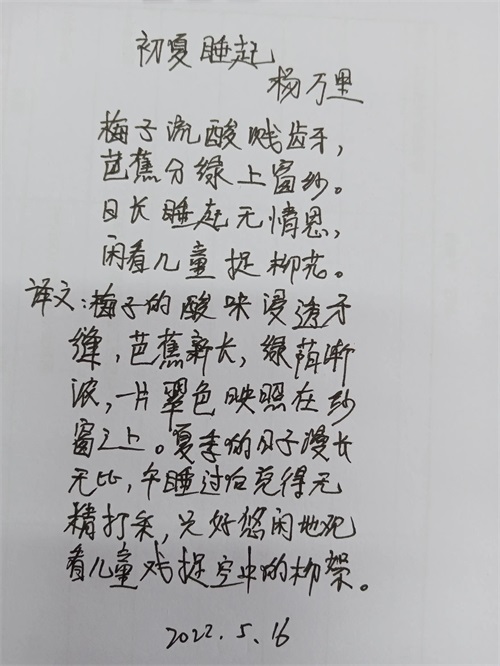 初夏睡起
杨万里
梅子流酸溅齿牙，
芭蕉分绿上窗纱。
日长睡起无情思，
闲看儿童捉柳花。
译文：梅子的酸味浸透牙
缝，芭蕉新长，绿荫渐
浓，一片翠色映照在纱
窗之上。夏季的日子漫长
无比，午睡过后觉得无
精打采，只好悠闲地
看儿童戏捉空中的柳絮。
2022.5.16